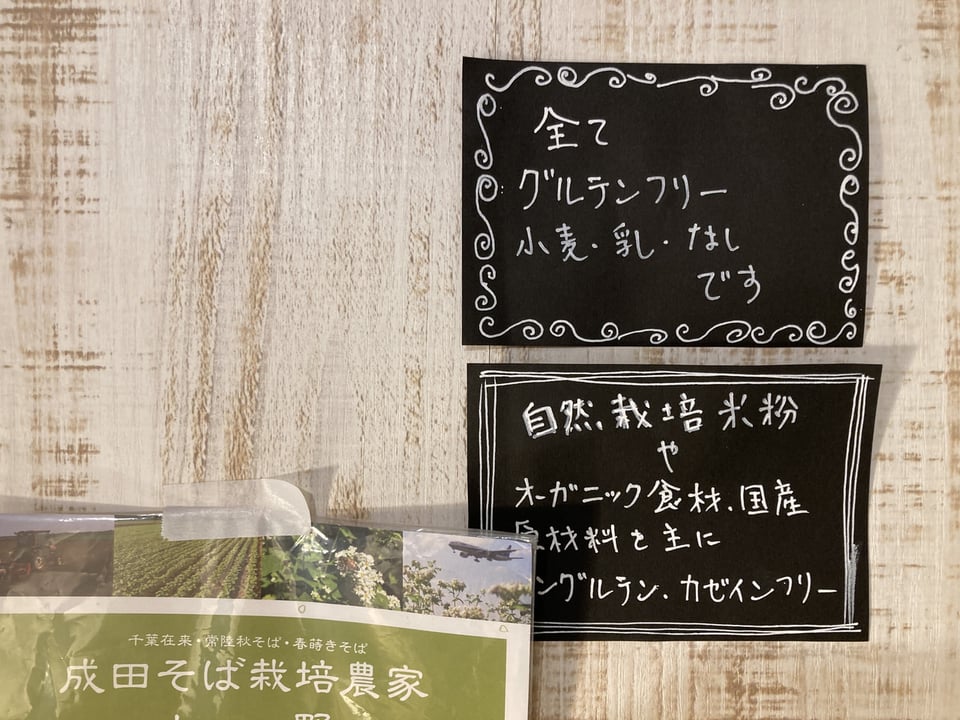 全て
グルテンフリー
小麦・乳・なし
です
自然栽培米粉
や
オーガニック食材、国産
原材料を主に
ングルテン、カゼインフリー
千葉在来・常陸秋そば・春蒔きそば
成田そば栽培農家